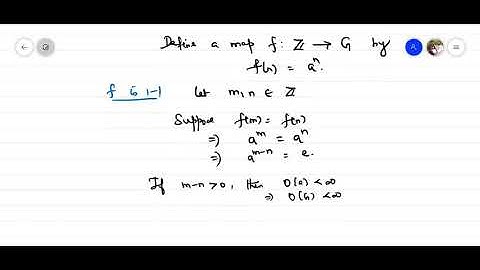 Define a map f: ℤ → G by
f(n) = aⁿ.
f is 1-1 Let m, n ∈ ℤ
Suppose f(m) = f(n)
⇒) aᵐ = aⁿ
⇒) aᵐ⁻ⁿ = e.
If m-n > 0, then O(a) < ∞
⇒ O(G) < ∞